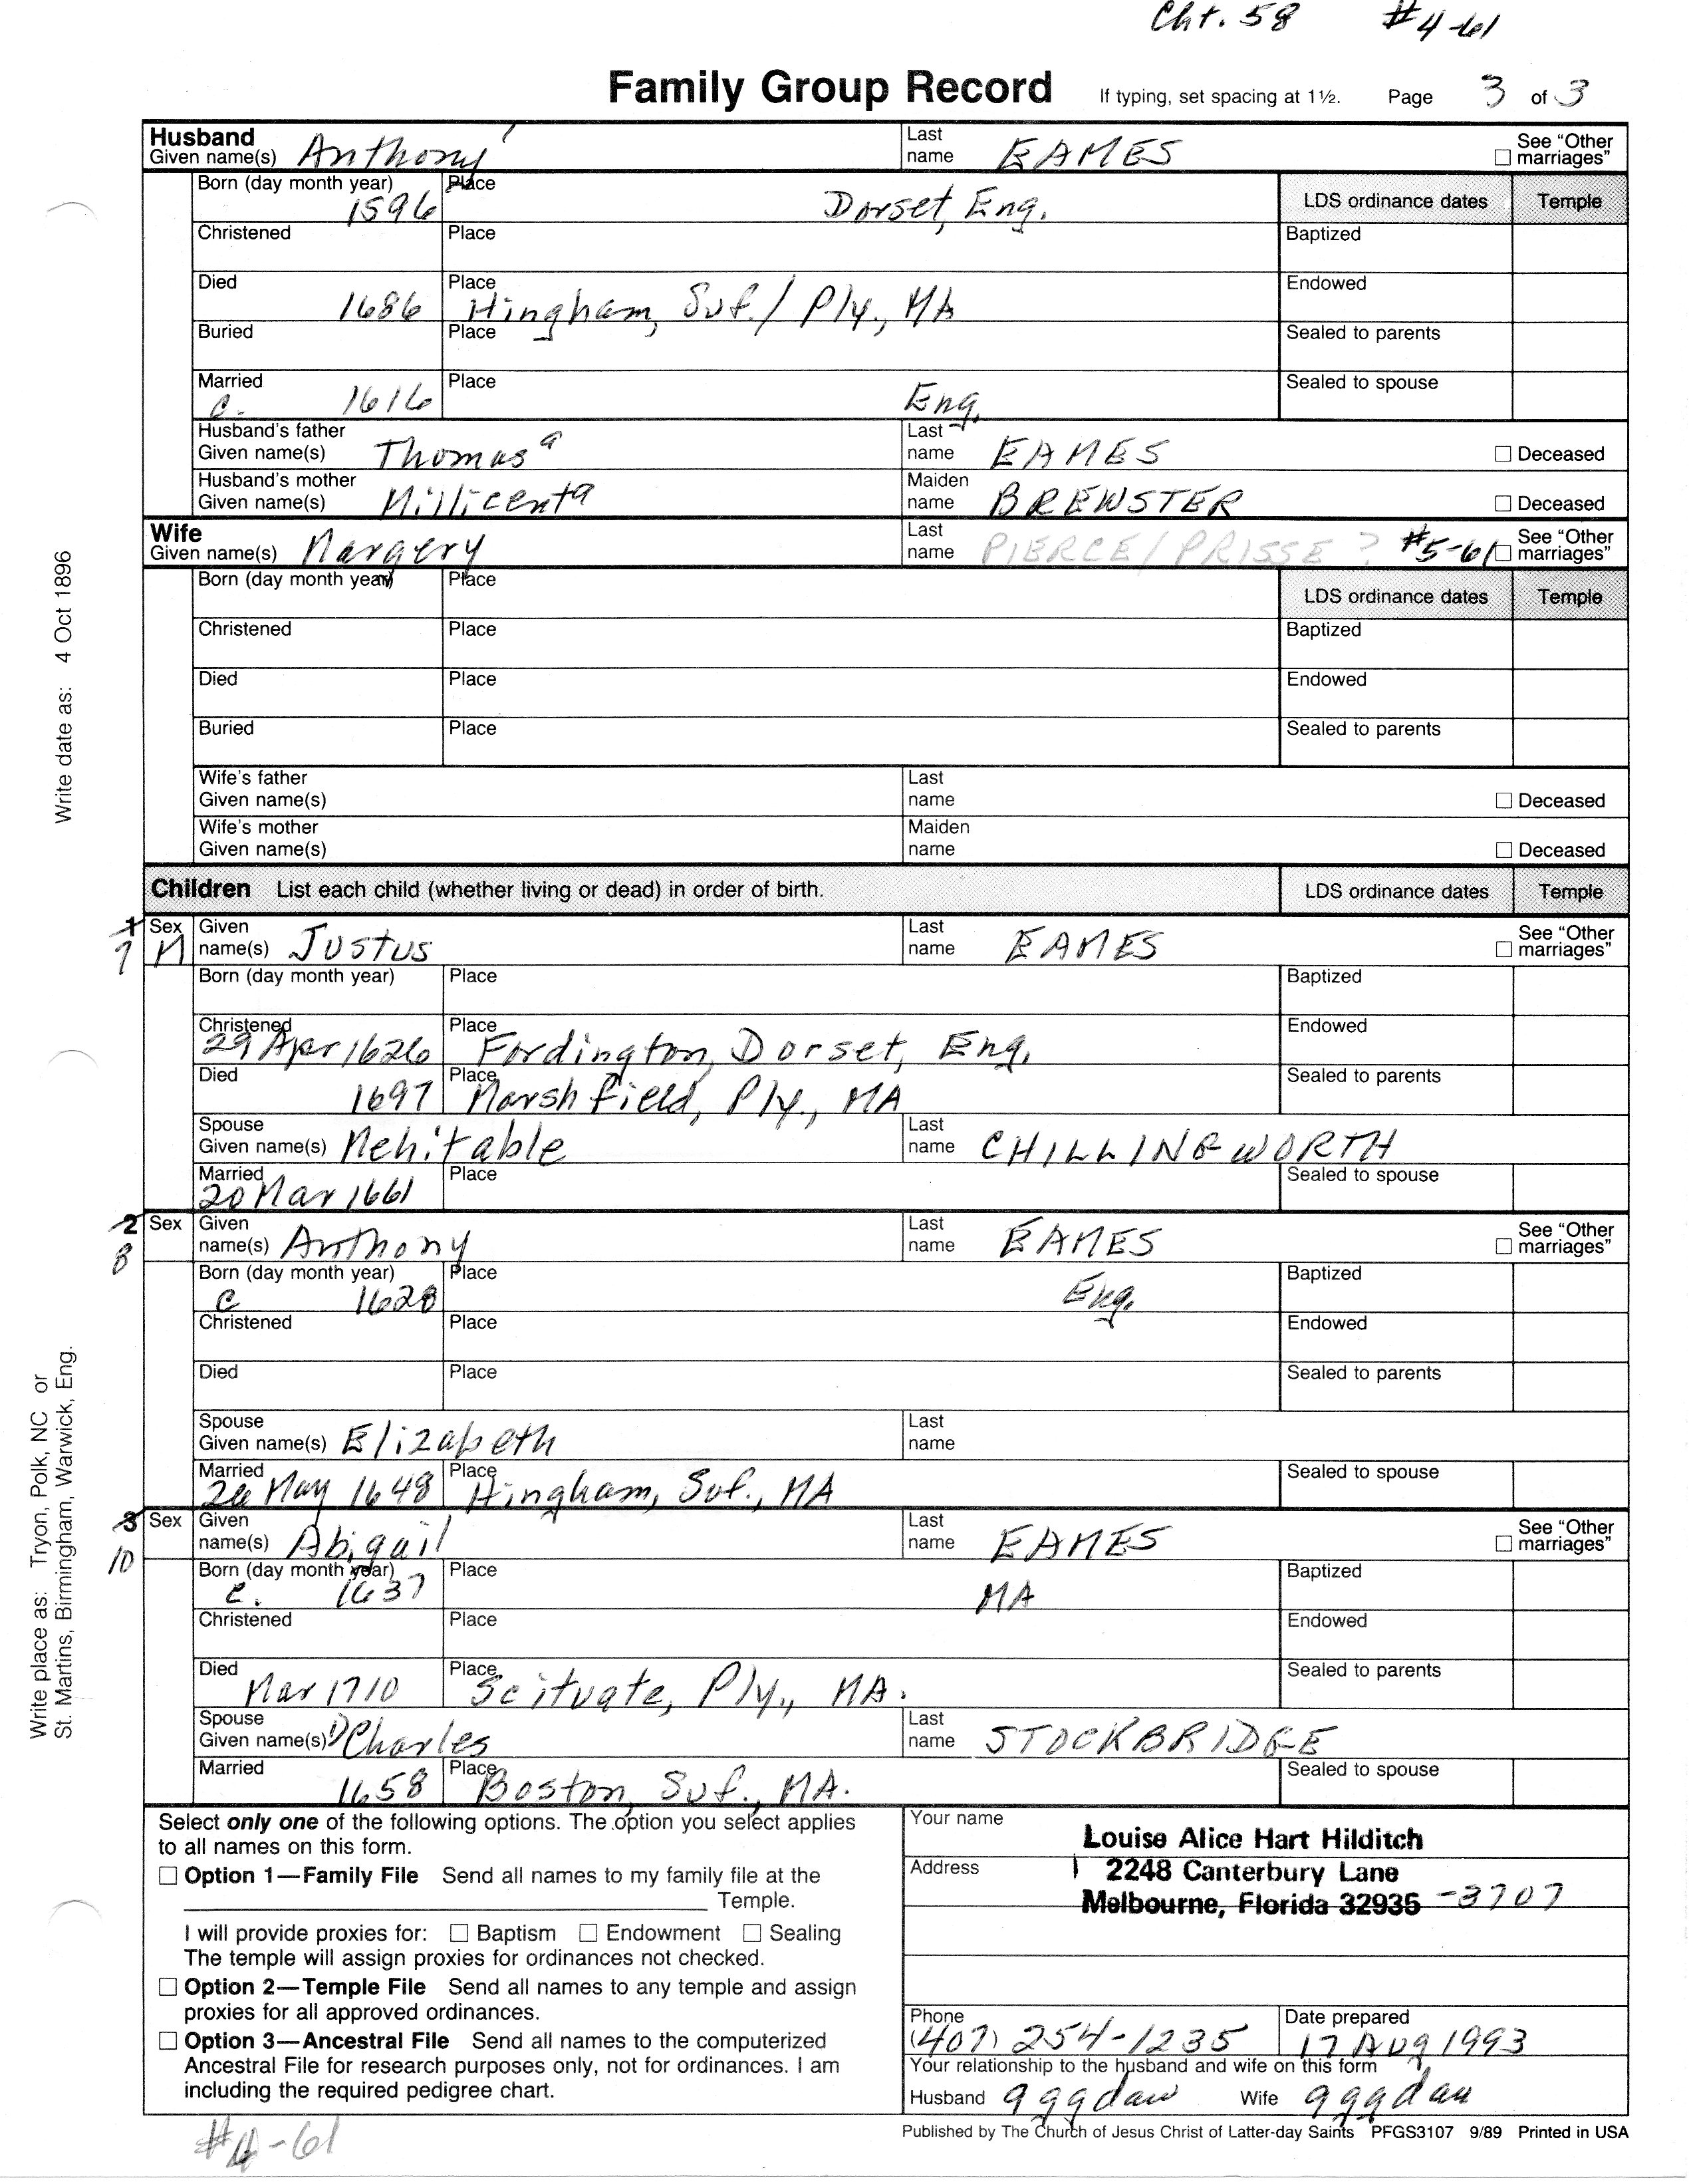 Cht. 58 #4-61
Family Group Record If typing, set spacing at 1½. Page 3 of 3
Husband
Given name(s) Anthony Last name EAMES See "Other marriages"
Born (day month year) 1596 Place Dorset, Eng. LDS ordinance dates Temple
Christened Place Baptized
Died 1686 Place Hingham, Suf./Ply., MA Endowed
Buried Place Sealed to parents
Married c. 1616 Place Eng. Sealed to spouse
Husband's father Given name(s) Thomas Last name EAMES Deceased
Husband's mother Given name(s) Millicent Maiden name BREWSTER Deceased
Wife
Given name(s) Margery Last name PIERCE/PRISSE ? #5-61 See "Other marriages"
Born (day month year) Place LDS ordinance dates Temple
Christened Place Baptized
Died Place Endowed
Buried Place Sealed to parents
Wife's father Given name(s) Last name Deceased
Wife's mother Given name(s) Maiden name Deceased
Children List each child (whether living or dead) in order of birth. LDS ordinance dates Temple
1 7 Sex M Given name(s) Justus Last name EAMES See "Other marriages"
Born (day month year) Place Baptized
Christened 29 Apr 1626 Place Fordington, Dorset, Eng. Endowed
Died 1697 Place Marshfield, Ply., MA Sealed to parents
Spouse Given name(s) Mehitable Last name CHILLINGWORTH
Married 20 Mar 1661 Place Sealed to spouse
2 8 Sex Given name(s) Anthony Last name EAMES See "Other marriages"
Born (day month year) c 1628 Place Eng. Baptized
Christened Place Endowed
Died Place Sealed to parents
Spouse Given name(s) Elizabeth Last name
Married 26 May 1648 Place Hingham, Suf., MA Sealed to spouse
3 10 Sex Given name(s) Abigail Last name EAMES See "Other marriages"
Born (day month year) c. 1637 Place MA Baptized
Christened Place Endowed
Died Mar 1710 Place Scituate, Ply., MA. Sealed to parents
Spouse Given name(s) 1) Charles Last name STOCKBRIDGE
Married 1658 Place Boston, Suf., MA. Sealed to spouse
Select only one of the following options. The option you select applies
to all names on this form.
Option 1—Family File Send all names to my family file at the
Temple.
I will provide proxies for: Baptism Endowment Sealing
The temple will assign proxies for ordinances not checked.
Option 2—Temple File Send all names to any temple and assign
proxies for all approved ordinances.
Option 3—Ancestral File Send all names to the computerized
Ancestral File for research purposes only, not for ordinances. I am
including the required pedigree chart.
Your name Louise Alice Hart Hilditch
Address 2248 Canterbury Lane
Melbourne, Florida 32935 -3707
Phone (407) 254-1235 Date prepared 17 Aug 1993
Your relationship to the husband and wife on this form
Husband gggdaw Wife gggdau
#4-61
Published by The Church of Jesus Christ of Latter-day Saints PFGS3107 9/89 Printed in USA
Write date as: 4 Oct 1896
Write place as: Tryon, Polk, NC or
St. Martins, Birmingham, Warwick, Eng.